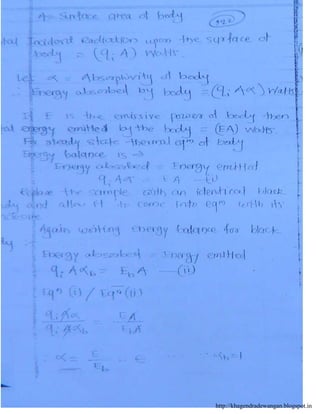 A = Surface area of body
Incident Radiation upon the surface of
body = (qi A) Watts.
Let α = Absorptivity of body
∴ Energy absorbed by body = (qi Aα) Watts
If E is the emissive power of body then
energy emitted by the body = (EA) Watts.
For steady state thermal eqm of body
Energy balance is →
Energy absorbed = Energy emitted
qi Aα = EA —(i)
the sample with an identical black
and allow it to come into eqm with its
Again writing energy balance for black
Energy absorbed = Energy emitted
qi Aαb = Eb A —(ii)
Eqn (i) / Eqn (ii)
qi Aα / qi Aαb = EA / EbA
∴ α = E / Eb = ∈ ∵ αb = 1
http://khagendradewangan.blogspot.in